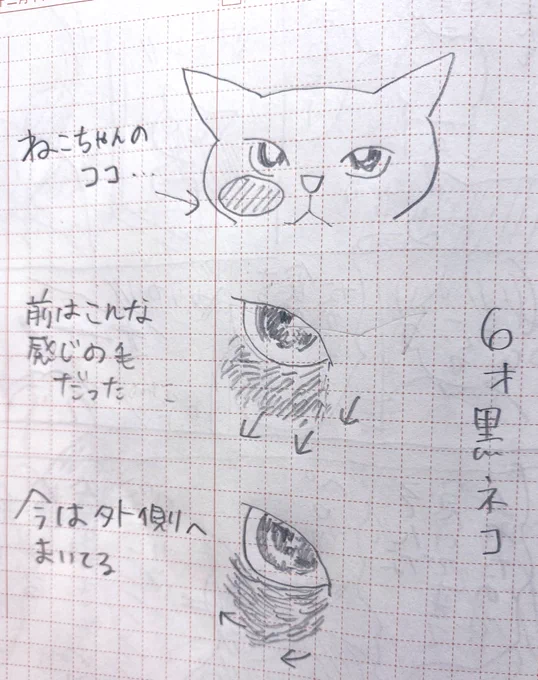 ねこちゃんの
ココ…
前はこんな
感じの毛
だった
今は外側へ
まいてる
6才黒ネコ